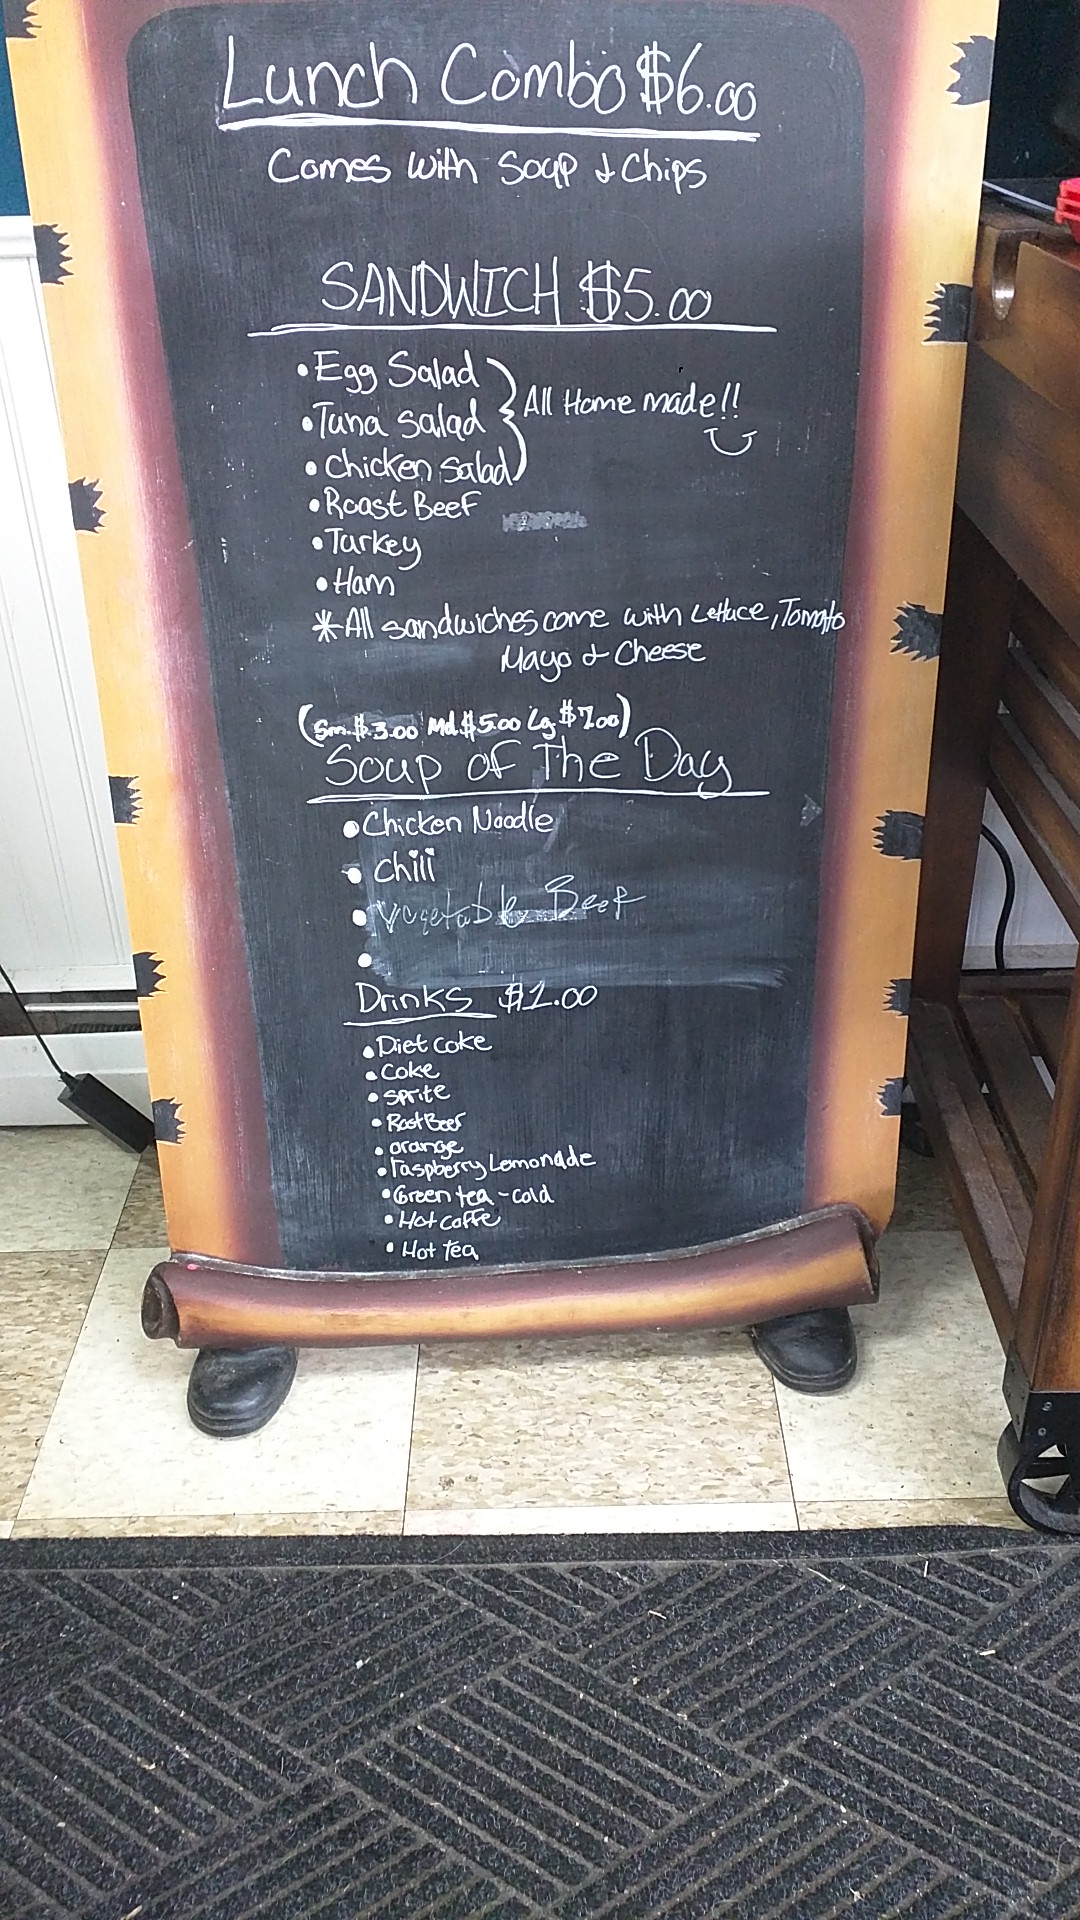 Lunch Combo $6.00
Comes with Soup & Chips
SANDWICH $5.00
• Egg Salad
• Tuna Salad
• Chicken Salad
All Home made!!
• Roast Beef
• Turkey
• Ham
* All sandwiches come with Lettuce, Tomato
Mayo & Cheese
(Sm. $3.00 Md. $5.00 Lg $7.00)
Soup of The Day
• Chicken Noodle
• Chili
• Vegetable Beef
•
Drinks $1.00
• Diet Coke
• Coke
• Sprite
• Root Beer
• orange
• raspberry Lemonade
• Green tea - cold
• Hot coffe
• Hot Tea